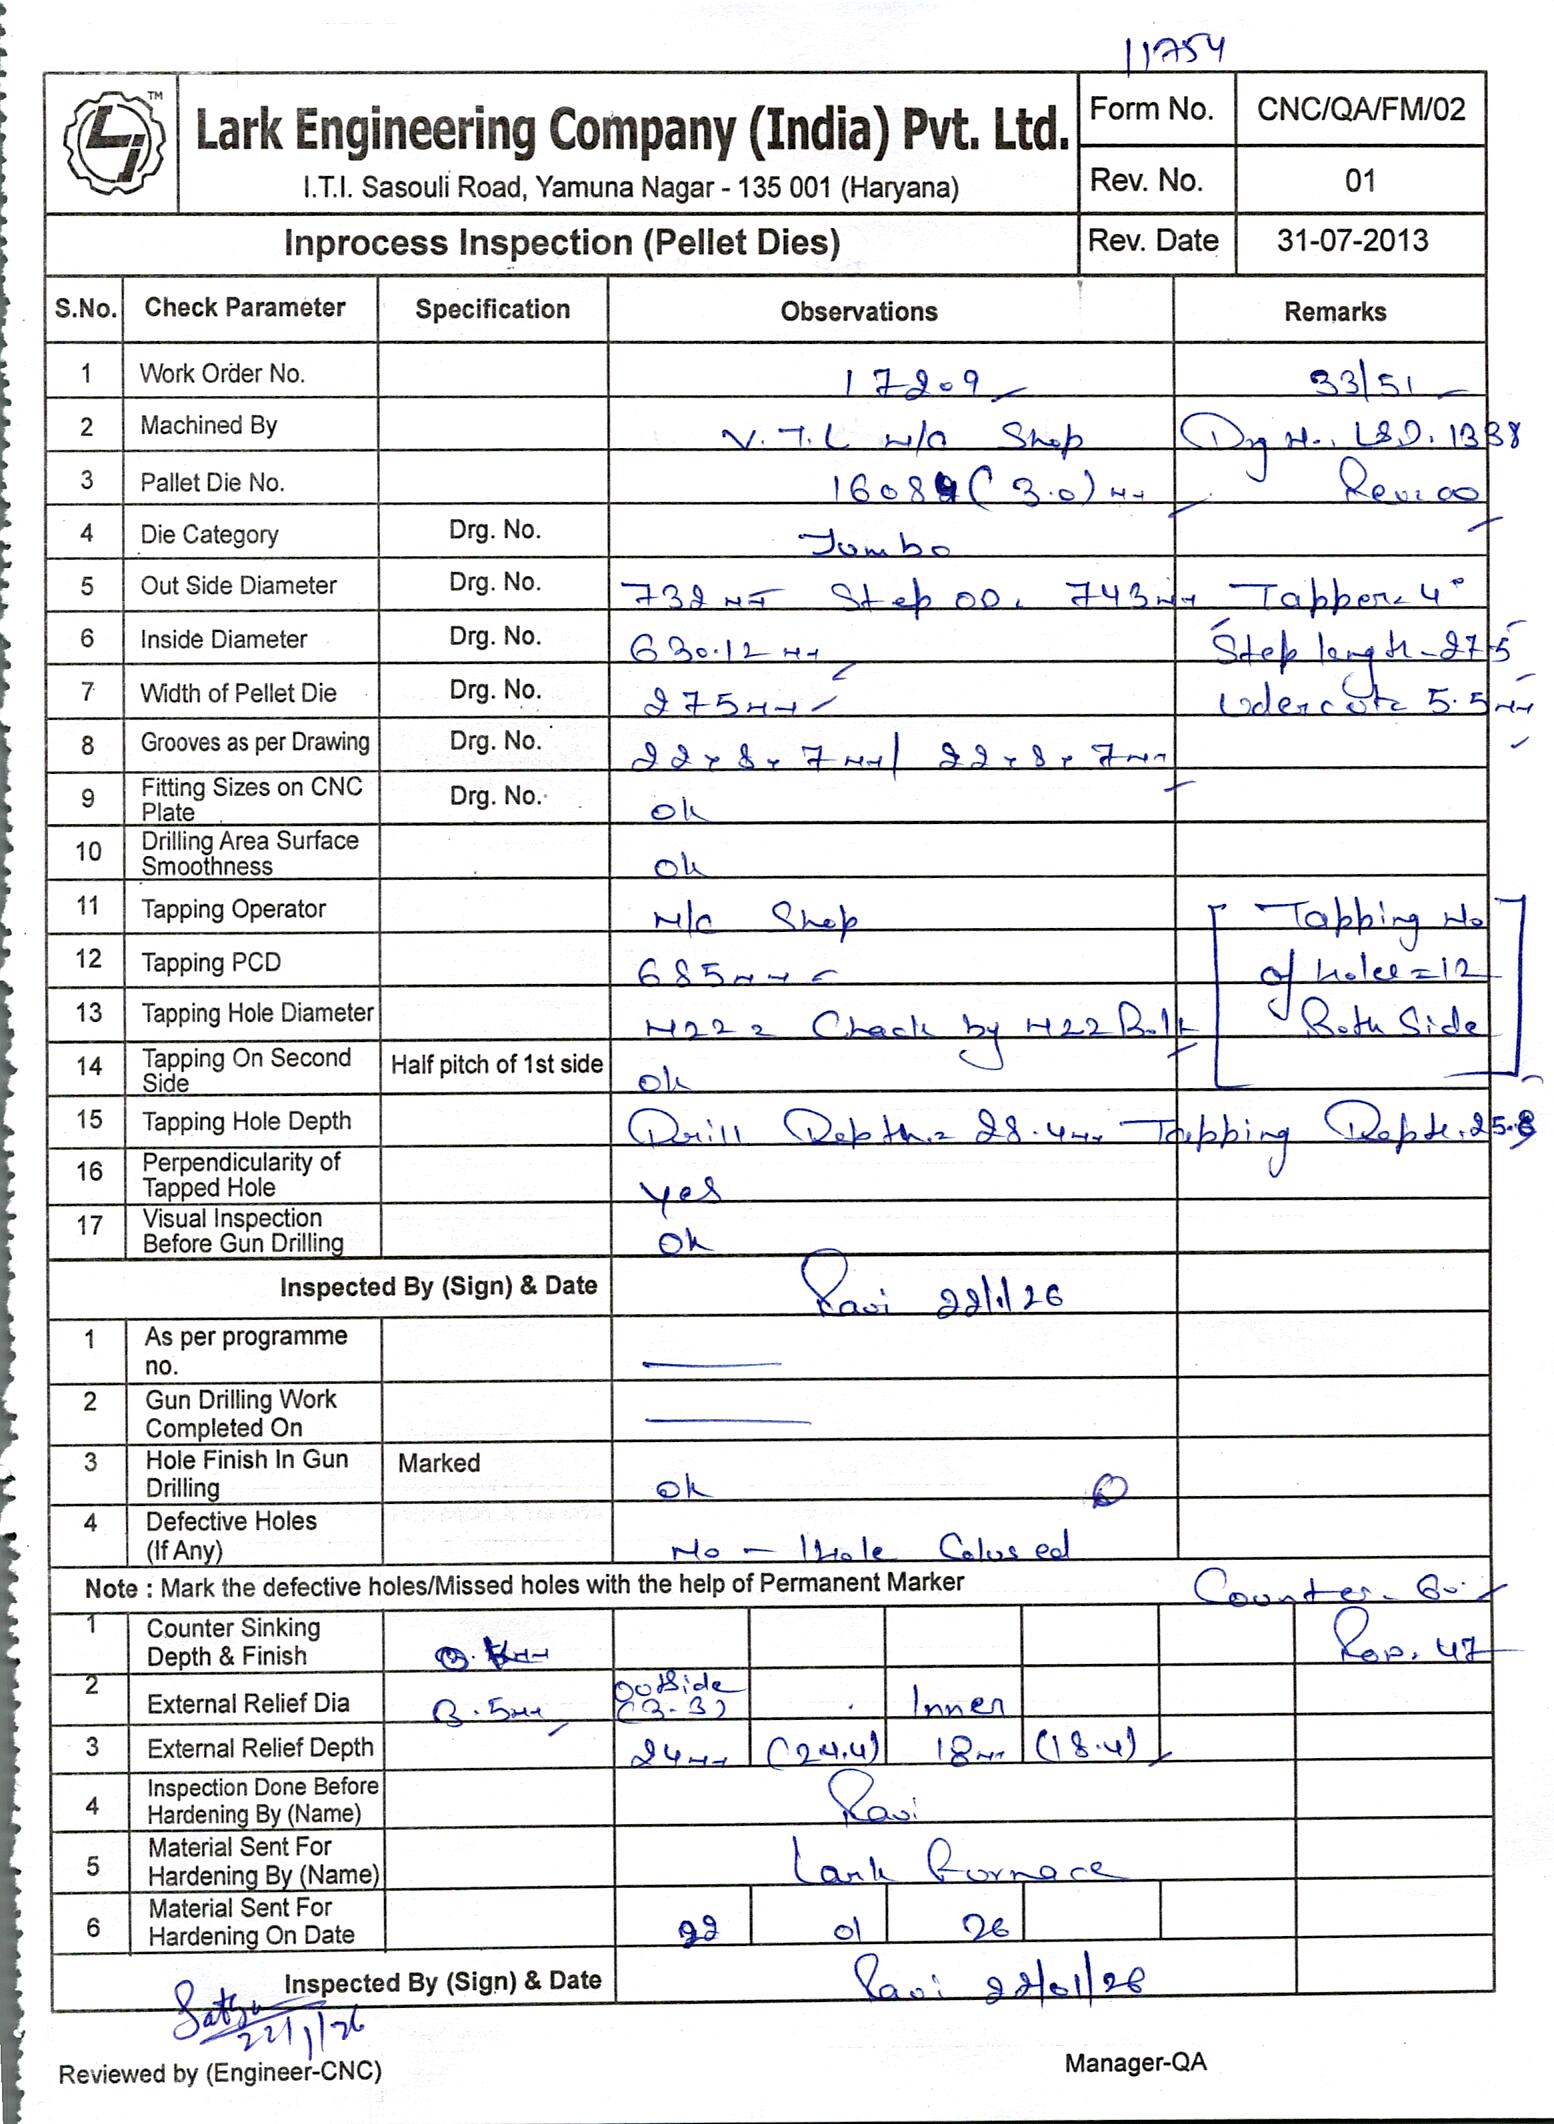 11754
TM
Lark Engineering Company (India) Pvt. Ltd.
I.T.I. Sasouli Road, Yamuna Nagar - 135 001 (Haryana)
Form No. CNC/QA/FM/02
Rev. No. 01
Inprocess Inspection (Pellet Dies) Rev. Date 31-07-2013
S.No. Check Parameter Specification Observations Remarks
1 Work Order No. 17209 33/51
2 Machined By V.T.L M/C Shop Drg No. LSD. 1338
3 Pallet Die No. 1608 (3.0) mm Rev: 00
4 Die Category Drg. No. Jumbo
5 Out Side Diameter Drg. No. 732 mm Step OD. 743 mm Tapper = 4°
6 Inside Diameter Drg. No. 630.12 mm Step length - 27.5
7 Width of Pellet Die Drg. No. 275 mm Udercut = 5.5 mm
8 Grooves as per Drawing Drg. No. 22 x 8 x 7 mm / 22 x 8 x 7 mm
9 Fitting Sizes on CNC Plate Drg. No. ok
10 Drilling Area Surface Smoothness ok
11 Tapping Operator M/C Shop Tapping No
12 Tapping PCD 685 mm of holes = 12
13 Tapping Hole Diameter M22 = Check by M22 Bolt Both Side
14 Tapping On Second Side Half pitch of 1st side ok
15 Tapping Hole Depth Drill Depth = 28.4 mm Tapping Depth.
16 Perpendicularity of Tapped Hole yes
17 Visual Inspection Before Gun Drilling ok
Inspected By (Sign) & Date Ravi 22/1/26
1 As per programme no.
2 Gun Drilling Work Completed On
3 Hole Finish In Gun Drilling Marked ok
4 Defective Holes (If Any) No - 1 Hole Colused
Note : Mark the defective holes/Missed holes with the help of Permanent Marker Counter -
1 Counter Sinking Depth & Finish 47
2 External Relief Dia 3.5 mm Outside (3-3) Inner
3 External Relief Depth 24 mm (24.4) 18 mm (18.4)
4 Inspection Done Before Hardening By (Name) Ravi
5 Material Sent For Hardening By (Name) Lark Furnace
6 Material Sent For Hardening On Date 22 01 26
Inspected By (Sign) & Date Ravi 22/01/26
22/1/26
Reviewed by (Engineer-CNC) Manager-QA